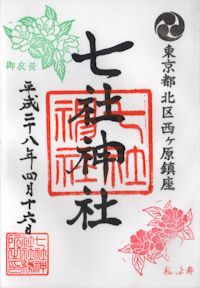 東京都北区西ヶ原鎮座
七社神社
平成二十八年四月十六日
御衣黄
七社神社